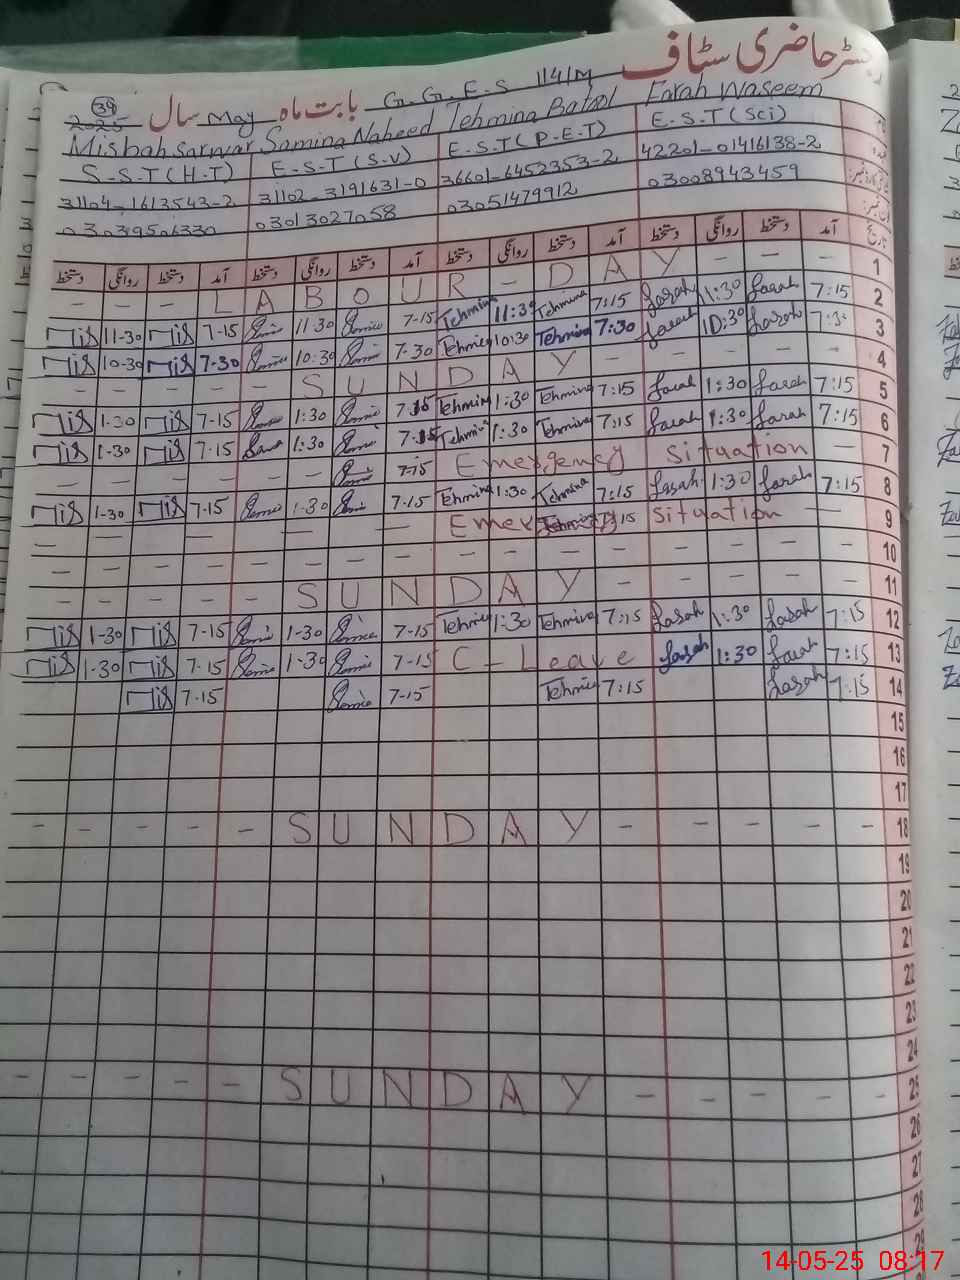 رجسٹر حاضری سٹاف
G.G.E.S 114/M بابت ماہ May سال 2025
39
Misbah Sarwar Samina Naheed Tehmina Batool Farah Waseem
S.S.T(H.T) E.S.T(S.V) E.S.T(P.E.T) E.S.T(Sci)
31104-1613543-2 31102-3191631-0 36601-6452353-2 42201-01416138-2
03013027058 03051479912 03008943459
تاریخ آمد دستخط روانگی دستخط آمد دستخط روانگی دستخط آمد دستخط روانگی دستخط آمد دستخط روانگی دستخط
- - - LABOUR - DAY - - - 1
11-30 7-15 11:30 7-15 Tehmina 11:30 Tehmina 7:15 Farah 11:30 Farah 7:15 2
10-30 7-30 10:30 7-30 Tehmina 10:30 Tehmina 7:30 Farah 10:30 Farah 3
- - - - - SUNDAY - - - - - 4
1-30 7-15 1:30 7-15 Tehmina 1:30 Tehmina 7:15 Farah 1:30 Farah 7:15 5
1-30 7-15 1:30 7-15 Tehmina 1:30 Tehmina 7:15 Farah 1:30 Farah 7:15 6
- - - - - - 7-15 Emergency Situation - 7
1-30 7-15 1-30 7-15 Tehmina 1:30 Tehmina 7:15 Farah 1:30 Farah 7:15 8
- - - - - - - - Emergency Situation - 9
- - - - - - - - - - - - - - - - 10
- - - - - SUNDAY - - - - - 11
1-30 7-15 1-30 7-15 Tehmina 1:30 Tehmina 7:15 Farah 1:30 Farah 7:15 12
1-30 7-15 1-30 7-15 C-Leave Farah 1:30 Farah 7:15 13
7-15 7-15 Tehmina 7:15 Farah 7:15 14
15
16
17
- - - - - SUNDAY - - - - - 18
19
20
21
22
23
24
- - - - - SUNDAY - - - - - 25
26
27
28
29
14-05-25 08:17